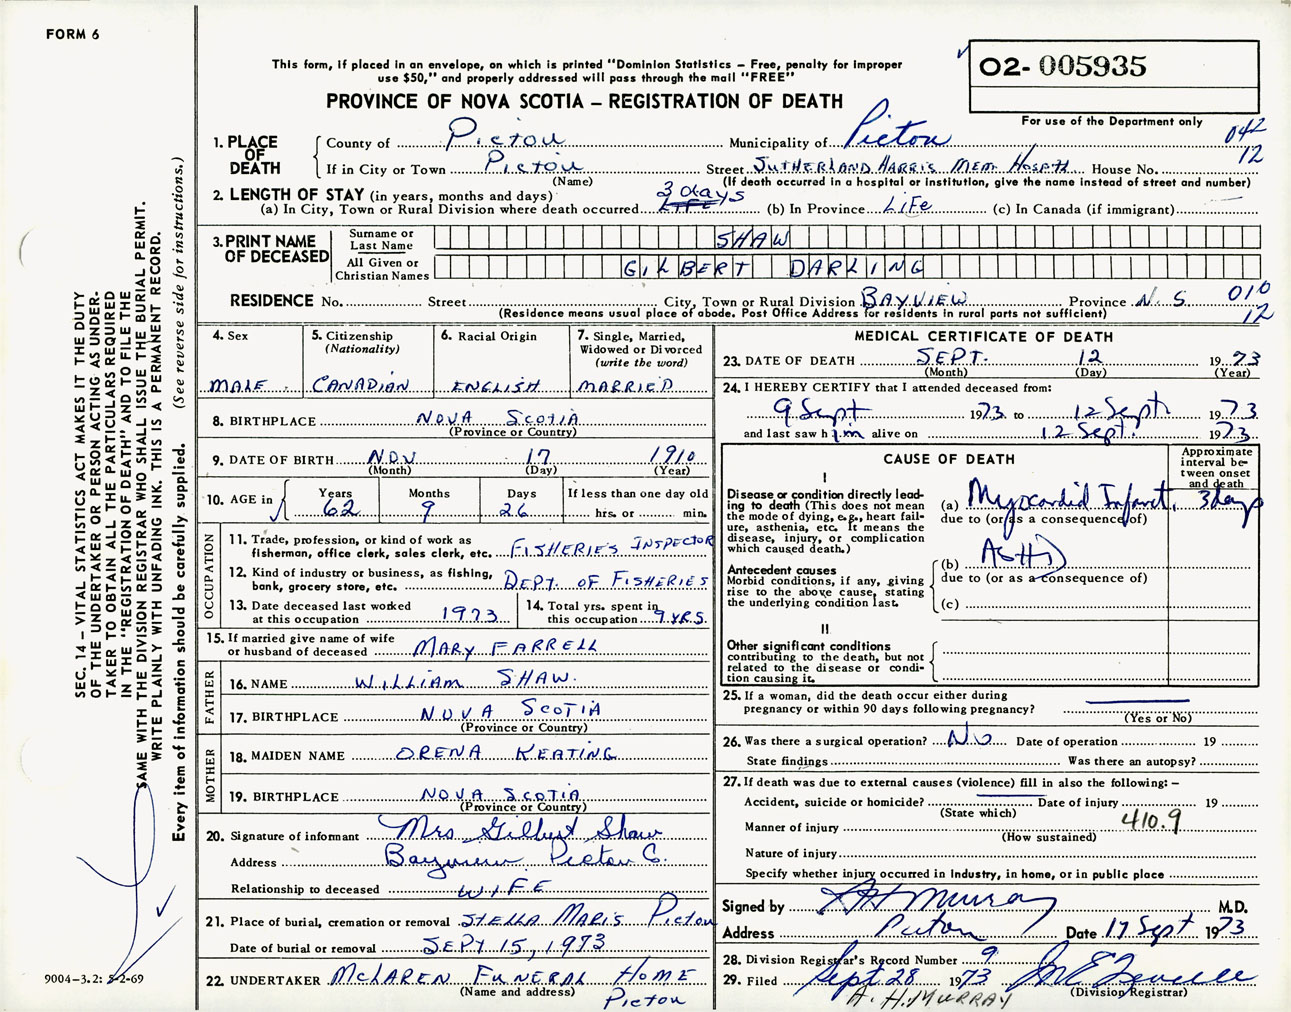 FORM 6
This form, if placed in an envelope, on which is printed "Dominion Statistics – Free, penalty for improper
use $50," and properly addressed will pass through the mail "FREE"
O2- 005935
PROVINCE OF NOVA SCOTIA – REGISTRATION OF DEATH
For use of the Department only
042
12
1. PLACE OF DEATH
County of Pictou Municipality of Pictou
If in City or Town Pictou Street SUTHERLAND HARRIS MEM. HOSP House No.
(Name) (If death occurred in a hospital or institution, give the name instead of street and number)
2. LENGTH OF STAY (in years, months and days)
(a) In City, Town or Rural Division where death occurred 3 days LIFE (b) In Province LIFe (c) In Canada (if immigrant)
3. PRINT NAME OF DECEASED
Surname or Last Name SHAW
All Given or Christian Names GILBERT DARLING
RESIDENCE No. Street City, Town or Rural Division BAYVIEW Province N.S. 010
12
(Residence means usual place of abode. Post Office Address for residents in rural parts not sufficient)
4. Sex
MALE
5. Citizenship
(Nationality)
CANADIAN
6. Racial Origin
ENGLISH
7. Single, Married,
Widowed or Divorced
(write the word)
MARRIED
8. BIRTHPLACE NOVA SCOTIA
(Province or Country)
9. DATE OF BIRTH NOV 17 1910
(Month) (Day) (Year)
10. AGE in
Years Months Days If less than one day old
62 9 26 hrs. or min.
OCCUPATION
11. Trade, profession, or kind of work as
fisherman, office clerk, sales clerk, etc. FISHERIES INSPECTOR
12. Kind of industry or business, as fishing,
bank, grocery store, etc. DEPT. OF FISHERIES
13. Date deceased last worked
at this occupation 1973
14. Total yrs. spent in
this occupation 9 YRS.
15. If married give name of wife
or husband of deceased MARY FARRELL
FATHER
16. NAME WILLIAM SHAW.
17. BIRTHPLACE NOVA SCOTIA
(Province or Country)
MOTHER
18. MAIDEN NAME ORENA KEATING
19. BIRTHPLACE NOVA SCOTIA
(Province or Country)
20. Signature of informant Mrs Gilbert Shaw
Address Bayview Pictou C.
Relationship to deceased WIFE
21. Place of burial, cremation or removal STELLA MARIS Pictou
Date of burial or removal SEPT 15, 1973
22. UNDERTAKER McLAREN FUNERAL HOME
(Name and address) Pictou
MEDICAL CERTIFICATE OF DEATH
23. DATE OF DEATH SEPT. 12 1973
(Month) (Day) (Year)
24. I HEREBY CERTIFY that I attended deceased from:
9 Sept 1973 to 12 Sept 1973
and last saw him alive on 12 Sept. 1973
CAUSE OF DEATH
Approximate
interval be-
tween onset
and death
I
Disease or condition directly lead-
ing to death (This does not mean
the mode of dying, e.g., heart fail-
ure, asthenia, etc. It means the
disease, injury, or complication
which caused death.)
(a) Myocardid Infarct, 3 days
due to (or as a consequence of)
Antecedent causes
Morbid conditions, if any, giving
rise to the above cause, stating
the underlying condition last.
(b) ASHD
due to (or as a consequence of)
(c)
II
Other significant conditions
contributing to the death, but not
related to the disease or condi-
tion causing it.
25. If a woman, did the death occur either during
pregnancy or within 90 days following pregnancy?
(Yes or No)
26. Was there a surgical operation? No Date of operation 19
State findings Was there an autopsy?
27. If death was due to external causes (violence) fill in also the following: –
Accident, suicide or homicide? Date of injury 19
(State which)
Manner of injury 410.9
(How sustained)
Nature of injury
Specify whether injury occurred in industry, in home, or in public place
Signed by A H Murray M.D.
Address Pictou Date 17 Sept 1973
28. Division Registrar's Record Number 9
29. Filed Sept 28 1973
(Division Registrar)
A. H. MURRAY
SEC. 14 – VITAL STATISTICS ACT MAKES IT THE DUTY
OF THE UNDERTAKER OR PERSON ACTING AS UNDER-
TAKER TO OBTAIN ALL THE PARTICULARS REQUIRED
IN THE "REGISTRATION OF DEATH" AND TO FILE THE
SAME WITH THE DIVISION REGISTRAR WHO SHALL ISSUE THE BURIAL PERMIT.
WRITE PLAINLY WITH UNFADING INK. THIS IS A PERMANENT RECORD.
Every item of information should be carefully supplied. (See reverse side for instructions.)
9004-3.2: 5-2-69